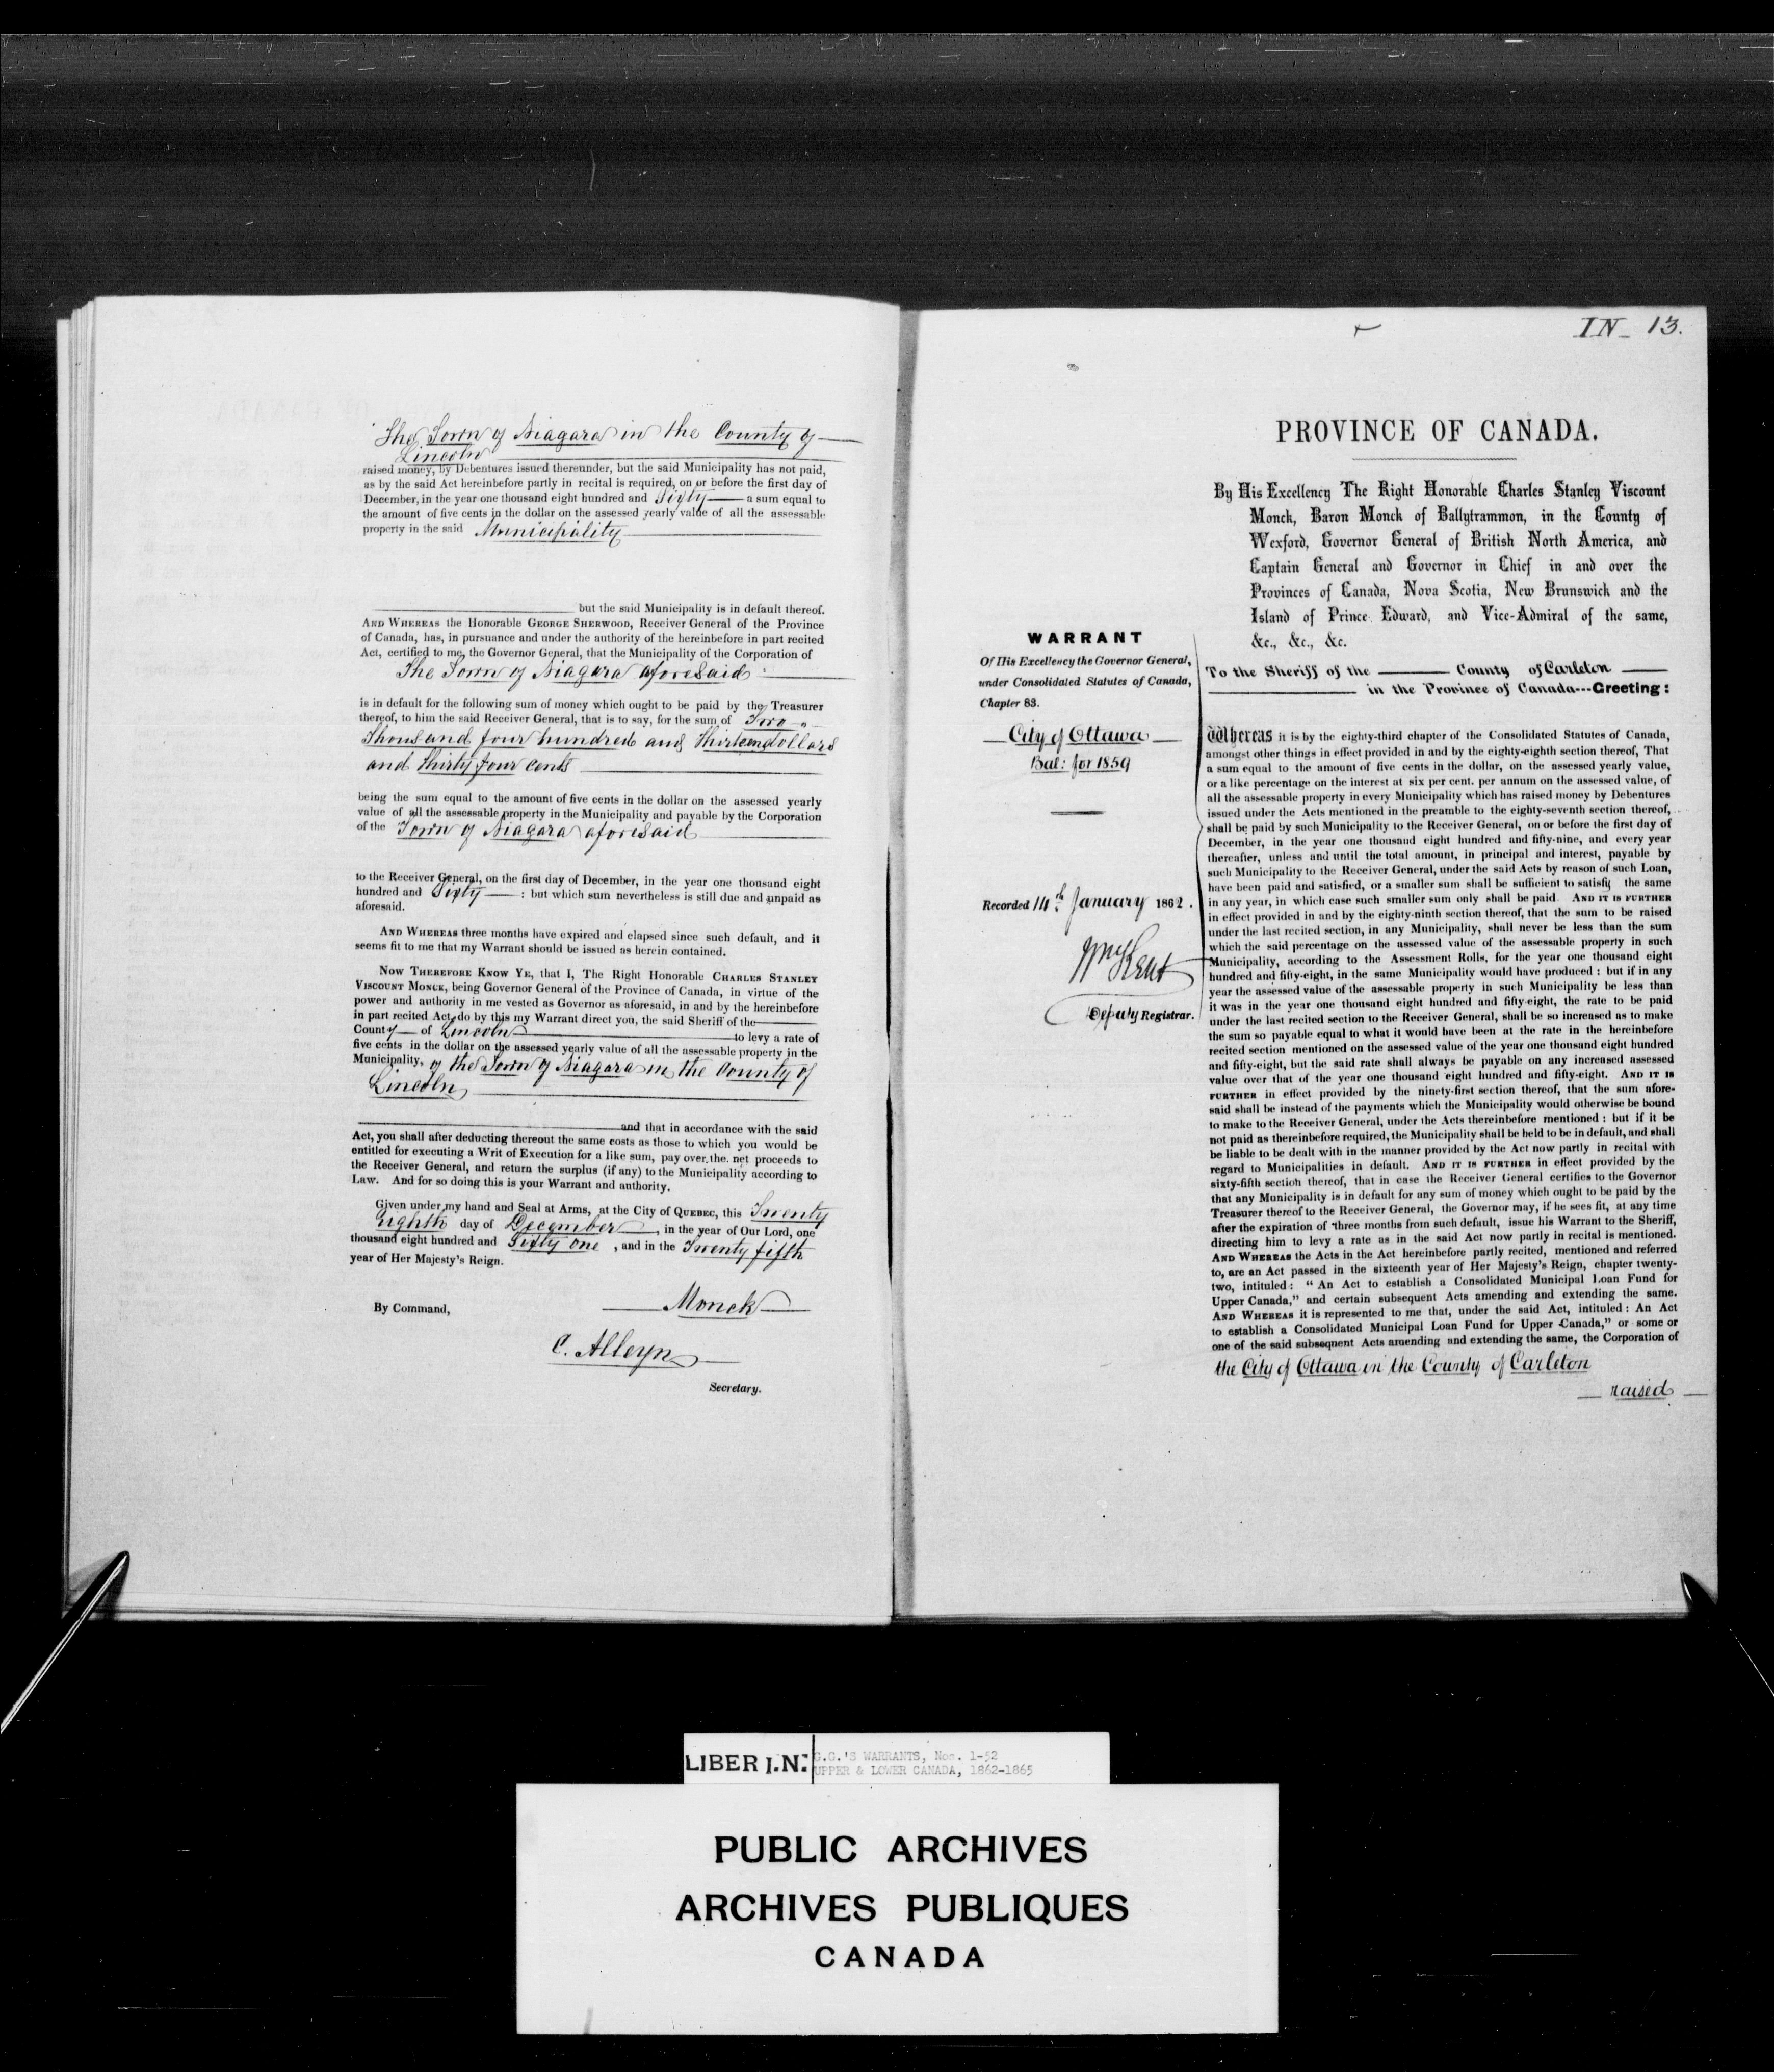 The Town of Niagara in the County of
Lincoln
raised money, by Debentures issued thereunder, but the said Municipality has not paid,
as by the said Act hereinbefore partly in recital is required, on or before the first day of
December, in the year one thousand eight hundred and Sixty a sum equal to
the amount of five cents in the dollar on the assessed yearly value of all the assessable
property in the said Municipality
but the said Municipality is in default thereof.
AND WHEREAS the Honorable GEORGE SHERWOOD, Receiver General of the Province
of Canada, has, in pursuance and under the authority of the hereinbefore in part recited
Act, certified to me, the Governor General, that the Municipality of the Corporation of
The Town of Niagara aforesaid
is in default for the following sum of money which ought to be paid by the Treasurer
thereof, to him the said Receiver General, that is to say, for the sum of Two
Thousand four hundred and thirteen dollars
and thirty four cents
being the sum equal to the amount of five cents in the dollar on the assessed yearly
value of all the assessable property in the Municipality and payable by the Corporation
of the Town of Niagara aforesaid
to the Receiver General, on the first day of December, in the year one thousand eight
hundred and Sixty : but which sum nevertheless is still due and unpaid as
aforesaid.
AND WHEREAS three months have expired and elapsed since such default, and it
seems fit to me that my Warrant should be issued as herein contained.
NOW THEREFORE KNOW YE, that I, The Right Honorable CHARLES STANLEY
VISCOUNT MONCK, being Governor General of the Province of Canada, in virtue of the
power and authority in me vested as Governor as aforesaid, in and by the hereinbefore
in part recited Act, do by this my Warrant direct you, the said Sheriff of the
County of Lincoln to levy a rate of
five cents in the dollar on the assessed yearly value of all the assessable property in the
Municipality, of the Town of Niagara in the County of
Lincoln
and that in accordance with the said
Act, you shall after deducting thereout the same costs as those to which you would be
entitled for executing a Writ of Execution for a like sum, pay over the net proceeds to
the Receiver General, and return the surplus (if any) to the Municipality according to
Law. And for so doing this is your Warrant and authority.
Given under my hand and Seal at Arms, at the City of QUEBEC, this Twenty
Eighth day of December, in the year of Our Lord, one
thousand eight hundred and Sixty one, and in the Twenty fifth
year of Her Majesty's Reign.
Monck
By Command,
C. Alleyn
Secretary.
IN 13.
PROVINCE OF CANADA.
By His Excellency The Right Honorable Charles Stanley Viscount
Monck, Baron Monck of Ballytrammon, in the County of
Wexford, Governor General of British North America, and
Captain General and Governor in Chief in and over the
Provinces of Canada, Nova Scotia, New Brunswick and the
Island of Prince Edward, and Vice-Admiral of the same,
&c., &c., &c.
To the Sheriff of the County of Carleton
in the Province of Canada---Greeting:
WARRANT
Of His Excellency the Governor General,
under Consolidated Statutes of Canada,
Chapter 83.
City of Ottawa
Bal: for 1859
Recorded 14th January 1862.
Wm Kent
Deputy Registrar.
Whereas it is by the eighty-third chapter of the Consolidated Statutes of Canada,
amongst other things in effect provided in and by the eighty-eighth section thereof, That
a sum equal to the amount of five cents in the dollar, on the assessed yearly value,
or a like percentage on the interest at six per cent. per annum on the assessed value, of
all the assessable property in every Municipality which has raised money by Debentures
issued under the Acts mentioned in the preamble to the eighty-seventh section thereof,
shall be paid by such Municipality to the Receiver General, on or before the first day of
December, in the year one thousand eight hundred and fifty-nine, and every year
thereafter, unless and until the total amount, in principal and interest, payable by
such Municipality to the Receiver General, under the said Acts by reason of such Loan,
have been paid and satisfied, or a smaller sum shall be sufficient to satisfy the same
in any year, in which case such smaller sum only shall be paid. AND IT IS FURTHER
in effect provided in and by the eighty-ninth section thereof, that the sum to be raised
under the last recited section, in any Municipality, shall never be less than the sum
which the said percentage on the assessed value of the assessable property in such
Municipality, according to the Assessment Rolls, for the year one thousand eight
hundred and fifty-eight, in the same Municipality would have produced : but if in any
year the assessed value of the assessable property in such Municipality be less than
it was in the year one thousand eight hundred and fifty-eight, the rate to be paid
under the last recited section to the Receiver General, shall be so increased as to make
the sum so payable equal to what it would have been at the rate in the hereinbefore
recited section mentioned on the assessed value of the year one thousand eight hundred
and fifty-eight, but the said rate shall always be payable on any increased assessed
value over that of the year one thousand eight hundred and fifty-eight. AND IT IS
FURTHER in effect provided by the ninety-first section thereof, that the sum afore-
said shall be instead of the payments which the Municipality would otherwise be bound
to make to the Receiver General, under the Acts thereinbefore mentioned : but if it be
not paid as thereinbefore required, the Municipality shall be held to be in default, and shall
be liable to be dealt with in the manner provided by the Act now partly in recital with
regard to Municipalities in default. AND IT IS FURTHER in effect provided by the
sixty-fifth section thereof, that in case the Receiver General certifies to the Governor
that any Municipality is in default for any sum of money which ought to be paid by the
Treasurer thereof to the Receiver General, the Governor may, if he sees fit, at any time
after the expiration of three months from such default, issue his Warrant to the Sheriff,
directing him to levy a rate as in the said Act now partly in recital is mentioned.
AND WHEREAS the Acts in the Act hereinbefore partly recited, mentioned and referred
to, are an Act passed in the sixteenth year of Her Majesty's Reign, chapter twenty-
two, intituled : " An Act to establish a Consolidated Municipal Loan Fund for
Upper Canada," and certain subsequent Acts amending and extending the same.
AND WHEREAS it is represented to me that, under the said Act, intituled : An Act
to establish a Consolidated Municipal Loan Fund for Upper Canada," or some or
one of the said subsequent Acts amending and extending the same, the Corporation of
the City of Ottawa in the County of Carleton
raised
LIBER I.N.
G.G.'S WARRANTS, Nos. 1-52
UPPER & LOWER CANADA, 1862-1865
PUBLIC ARCHIVES
ARCHIVES PUBLIQUES
CANADA